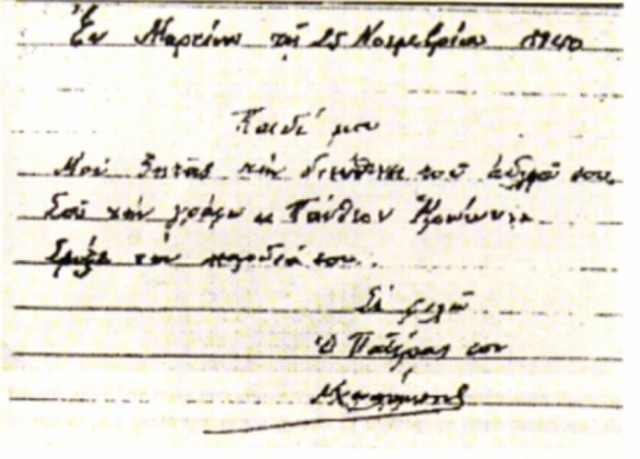 Ἐν Μαρτίνῳ τῇ 25 Νοεμβρίου 1940
Παιδί μου
Μοῦ ζητᾶς τὴν διεύθυνση τοῦ ἀδελφοῦ σου.
Σοῦ τὴν γράφω
Σφίξε τὴν καρδιά σου.
Σὲ φιλῶ
Ὁ Πατέρας σου